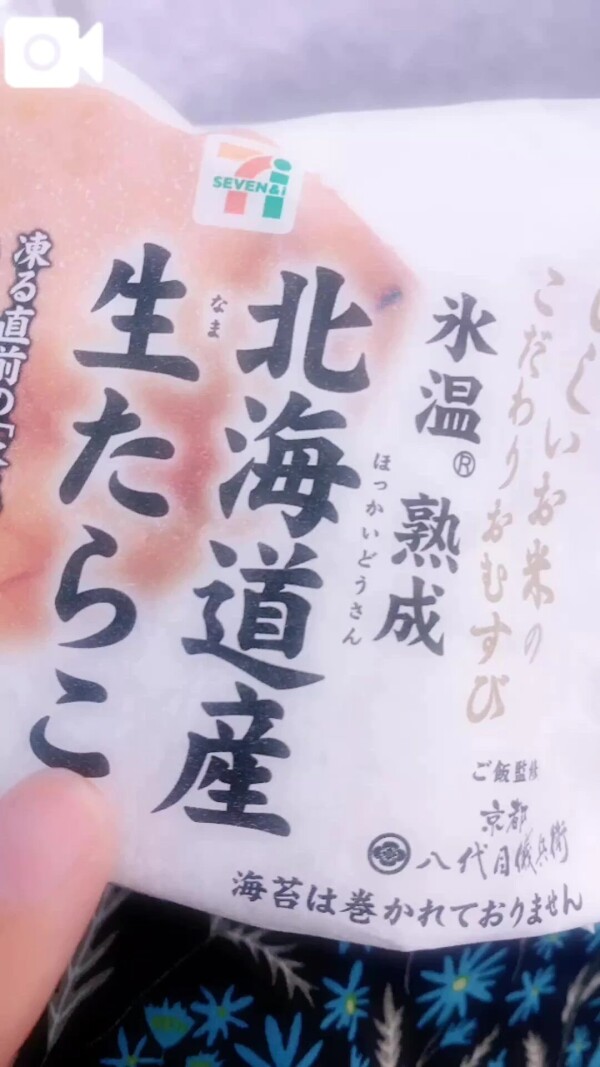 SEVEN&i
こだわりおむすび
いお米の
氷温®
熟成
ほっかいどうさん
北海道産
なま
生たらこ
凍る直前の「
ご飯監修
京都
八代目儀兵衛
海苔は巻かれておりません